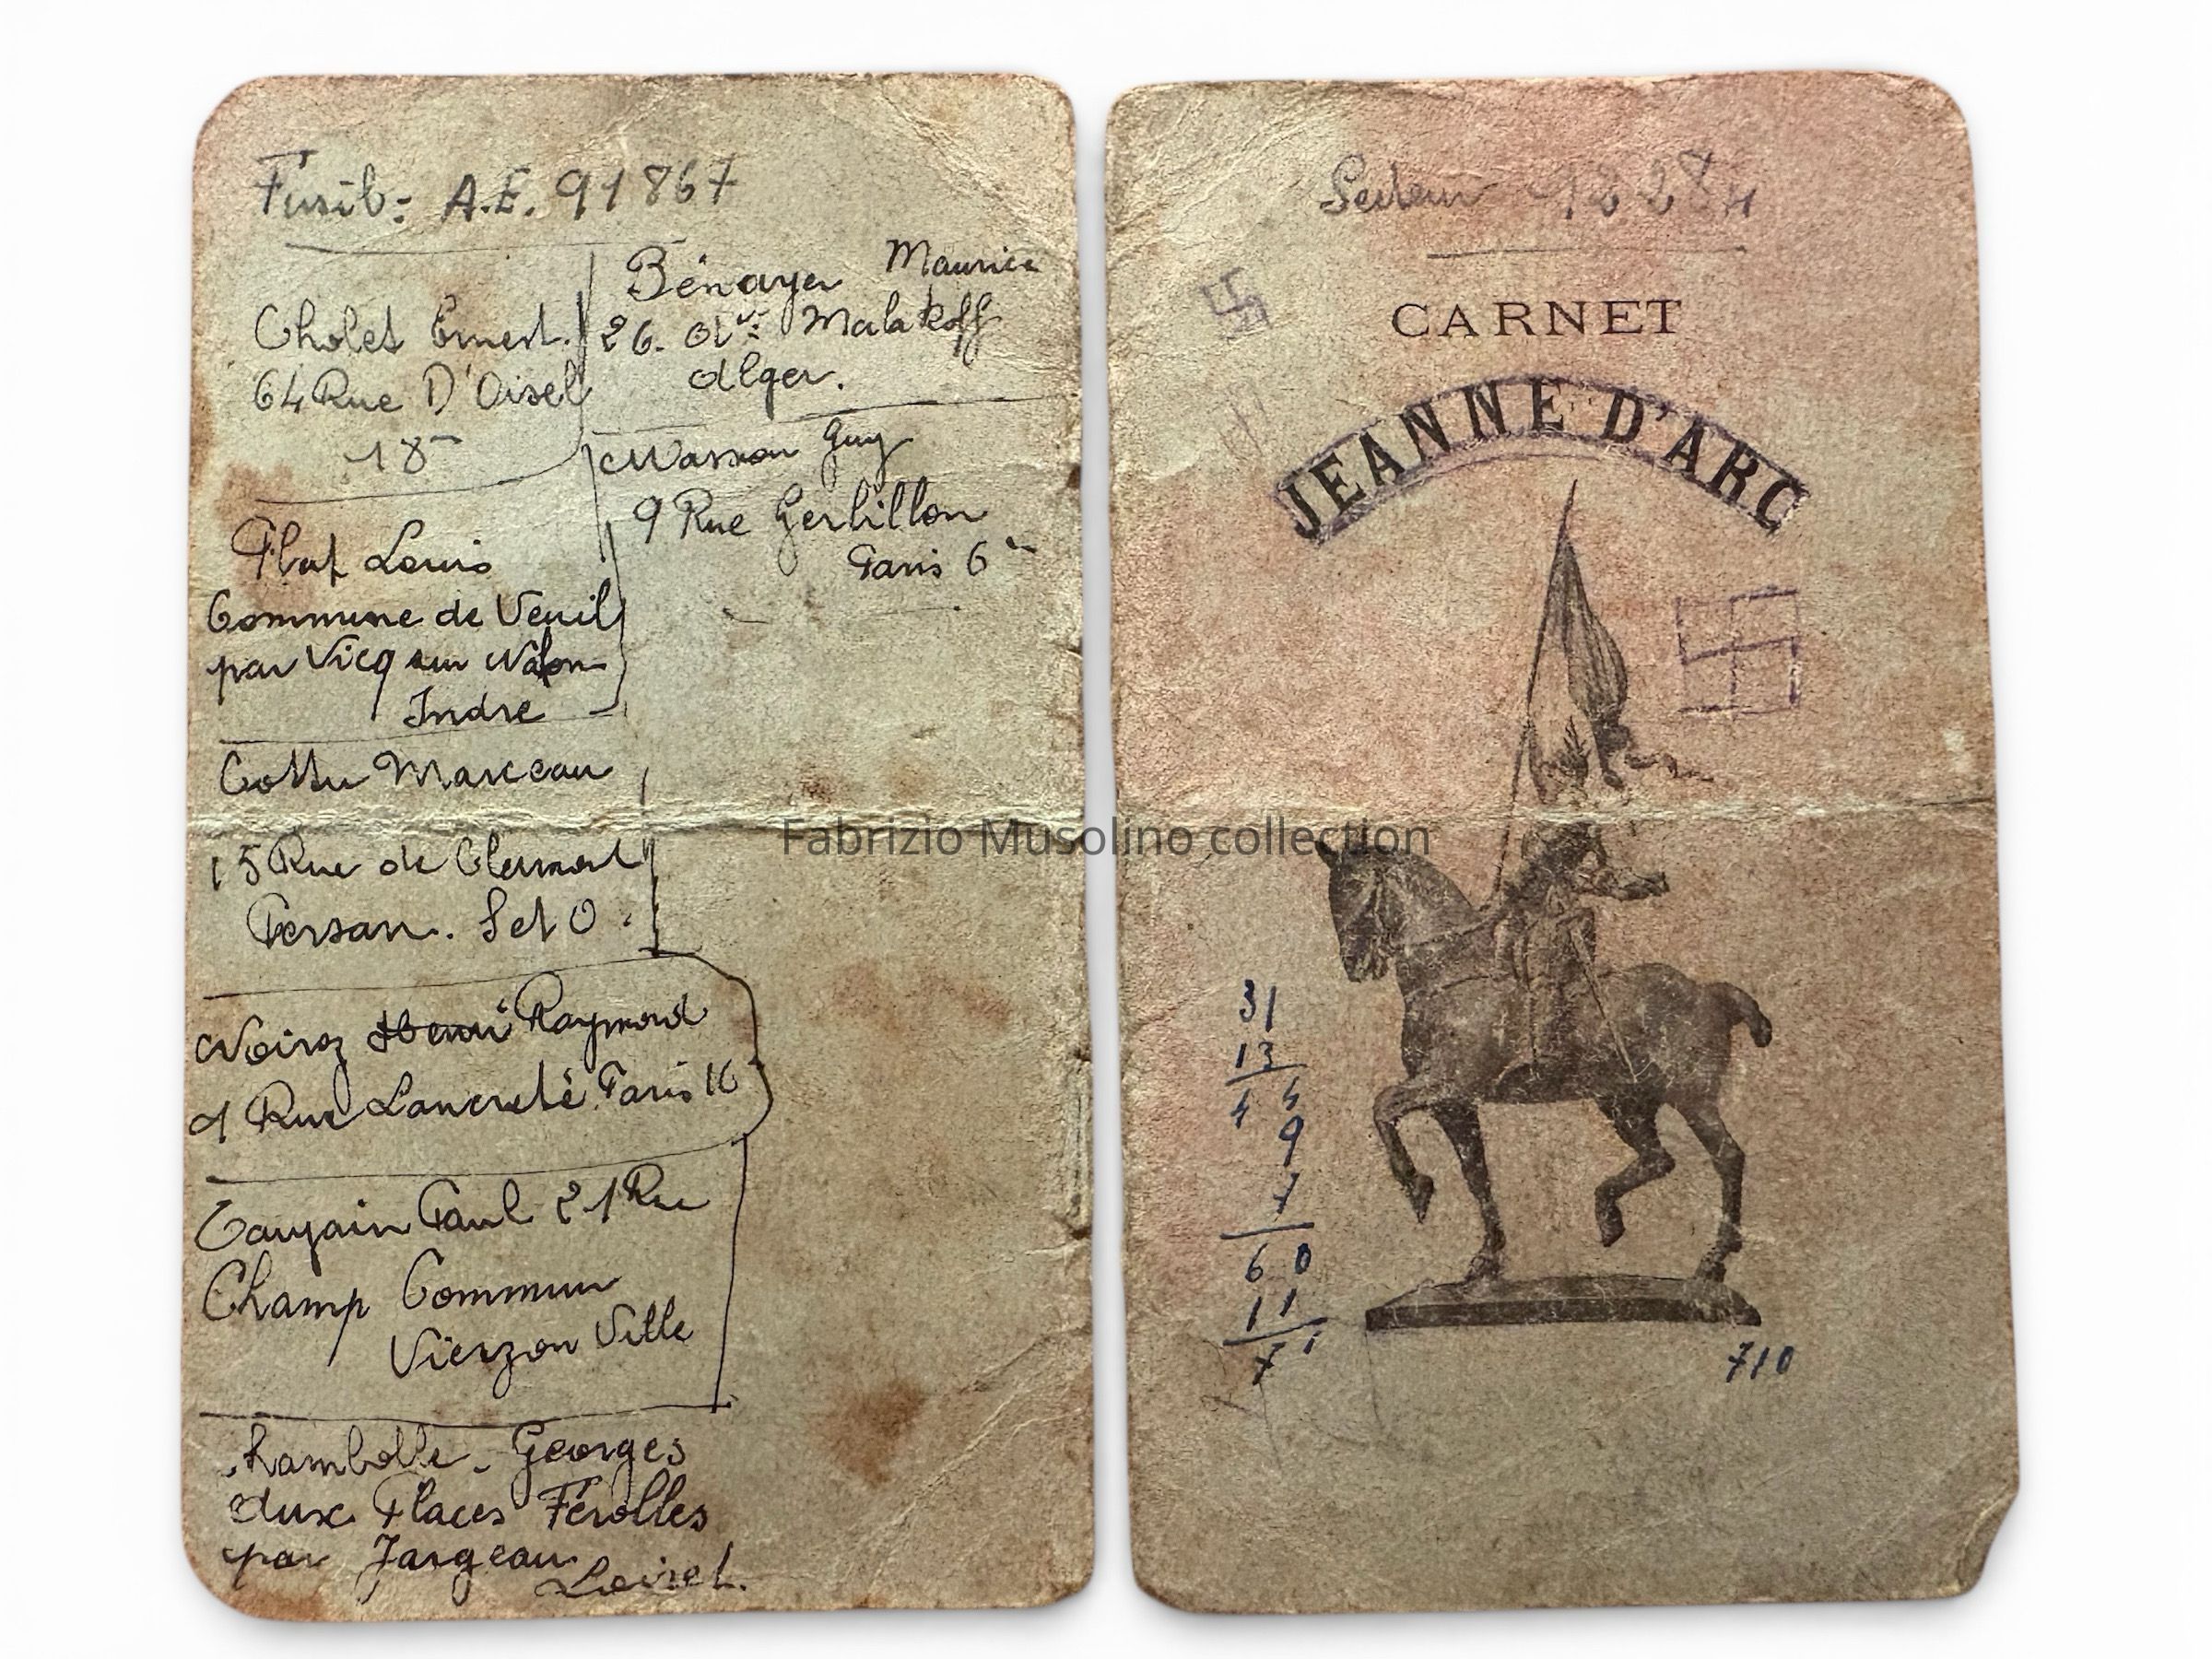 Fusil: A.E. 91867
Cholet Ernest.
64 Rue D'Oisel
18
Bénayer Maurice
26. Av: Malakoff
Alger.
Masson Guy
9 Rue Gerbillon
Paris 6
Plat Louis
Commune de Veuil
par Vicq sur Nahon
Indre
Cottu Marceau
15 Rue de Clermont
Persan. S et O.
Noiroz Henri Raymond
1 Rue Lancreté Paris 16
Paul 21 Rue
Champ Commun
Vierzon Ville
Rambolle. Georges
Aux Places Férolles
par Jargeau
Loiret.
Secteur
CARNET
JEANNE D'ARC
31
13
44
9
7
60
11
71
710
Fabrizio Musolino collection